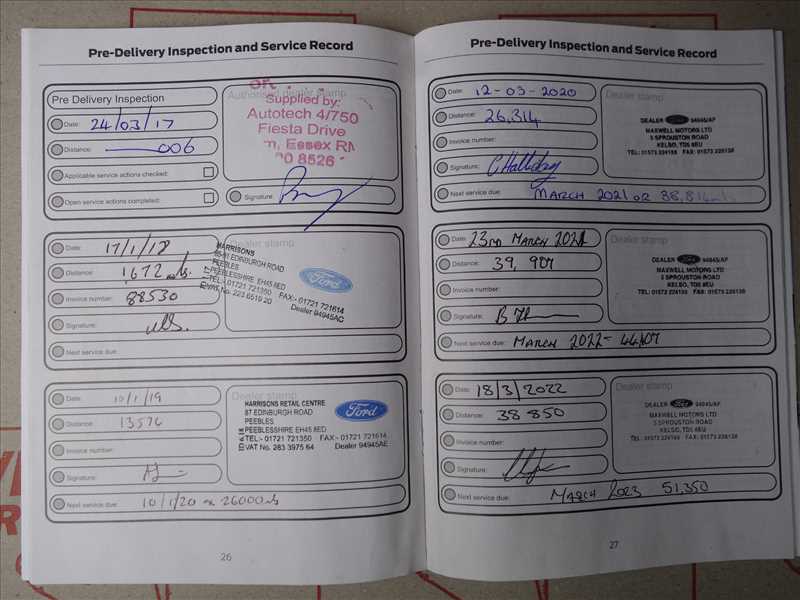 Pre-Delivery Inspection and Service Record
Pre Delivery Inspection
Date: 24/03/17
Distance: 006
Applicable service actions checked:
Open service actions completed:
Authorised dealer stamp
Supplied by:
Autotech 4/750
Fiesta Drive
m, Essex RM
0 8526
Signature:
Date: 17/1/18
Distance: 1,672 mls.
Invoice number: 88530
Signature:
Next service due:
Dealer stamp
HARRISONS
EDINBURGH ROAD
PEEBLES
PEEBLESSHIRE EH45 8ED
TEL:- 01721 721350 FAX:- 01721 721614
VAT No. 223 6519 20 Dealer 94945AC
Ford
Date: 10/1/19
Distance: 13576
Invoice number:
Signature:
Next service due: 10/1/20 or 26000mls
Dealer stamp
HARRISONS RETAIL CENTRE
87 EDINBURGH ROAD
PEEBLES
PEEBLESSHIRE EH45 8ED
TEL:- 01721 721350 FAX:- 01721 721614
VAT No. 283 3975 64 Dealer 94945AE
Ford
26
Pre-Delivery Inspection and Service Record
Date: 12-03-2020
Distance: 26,814
Invoice number:
Signature: C Halliday
Next service due: MARCH 2021 OR 38,814mls
Dealer stamp
DEALER Ford 94945/AF
MAXWELL MOTORS LTD
5 SPROUSTON ROAD
KELSO, TD5 8EU
TEL: 01573 224198 FAX: 01573 226138
Date: 23RD MARCH 2021
Distance: 39,907
Invoice number:
Signature:
Next service due: MARCH 2022 -
Dealer stamp
DEALER Ford 94945/AF
MAXWELL MOTORS LTD
5 SPROUSTON ROAD
KELSO, TD5 8EU
TEL: 01573 224198 FAX: 01573 226138
Date: 18/3/2022
Distance: 38 850
Invoice number:
Signature:
Next service due: MARCH 2023 51,350
Dealer stamp
DEALER Ford 94945/AF
MAXWELL MOTORS LTD
5 SPROUSTON ROAD
KELSO, TD5 8EU
TEL: 01573 224198 FAX: 01573 226138
27